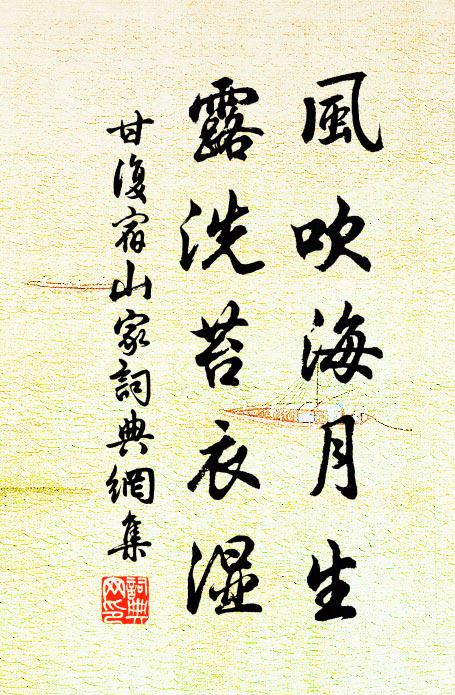 風吹海月生
露洗苔衣湿
甘復宿山家詞典網集
詞典
网印